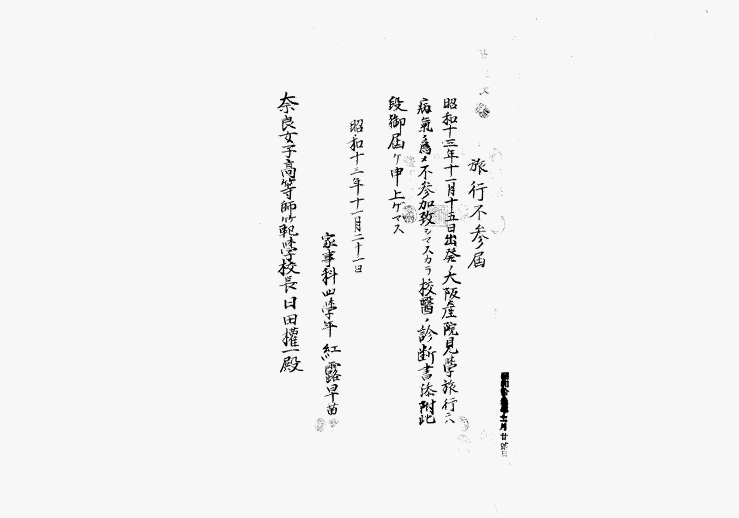 旅行不参届
昭和十三年十一月十五日出発ノ大阪産院見學旅行ハ
病氣ノ爲メ不参加致シマスカラ校醫ノ診断書添附此
段御届ケ申上ゲマス
昭和十三年十一月二十一日
家事科四學年 紅露早苗
奈良女子高等師範學校長日田權一殿